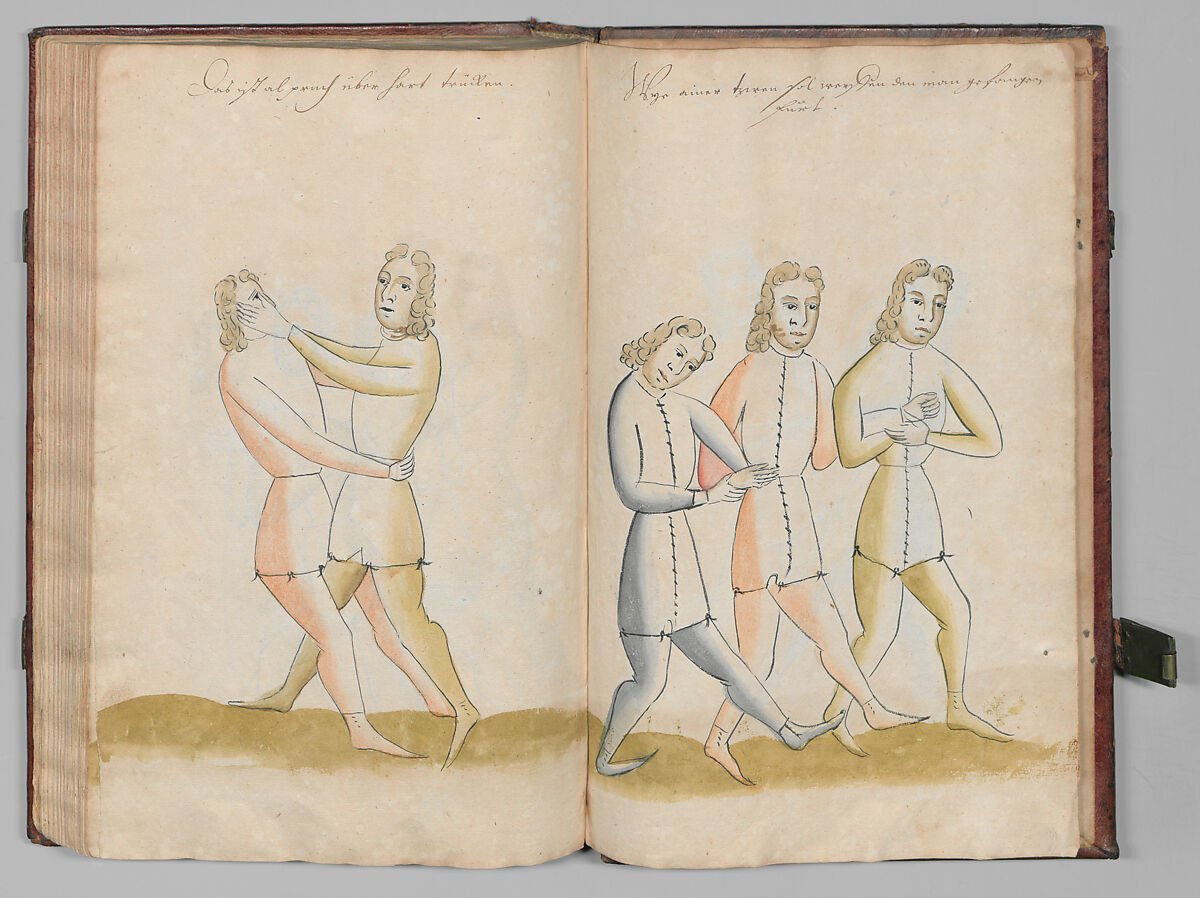 Das ist al pruch über hart trucken.
Wye ainer turen sol werden den man gefangen
fürt.